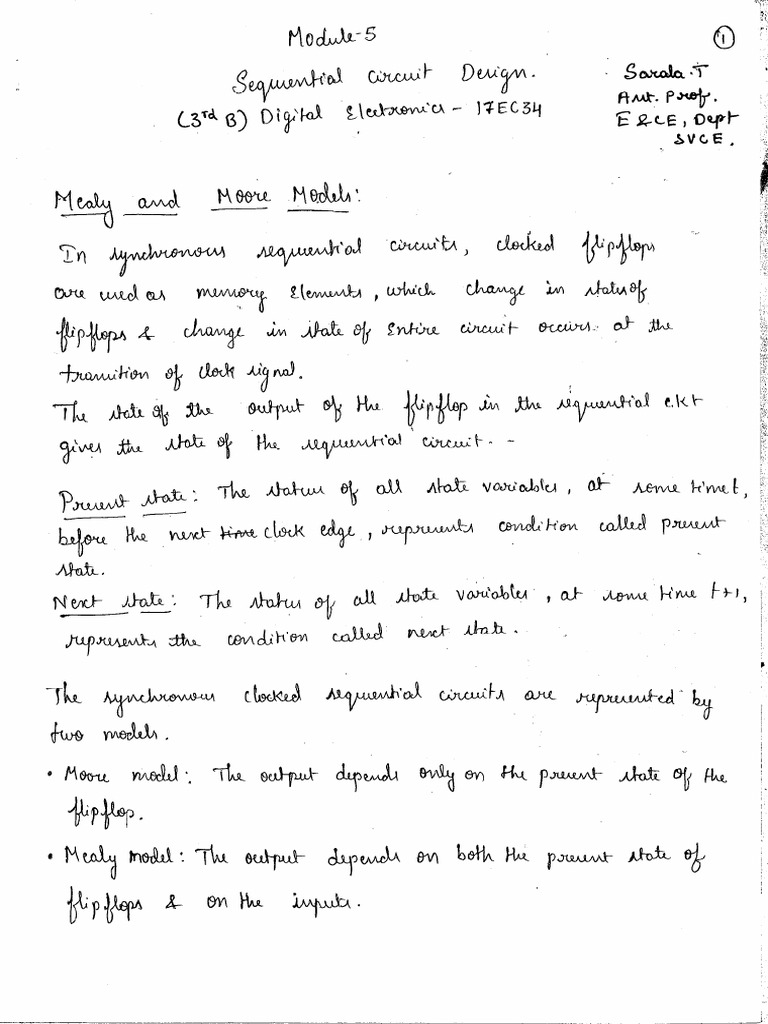 Module-5
1
Sequential Circuit Design.
(3rd B) Digital Electronics - 17EC34
Sarala.T
Asst. Prof.
E&CE, Dept
SVCE.
Mealy and Moore Models:
In synchronous sequential circuits, clocked flipflops
are used as memory Elements, which change in status of
flipflops & change in state of Entire circuit occurs at the
transition of clock signal.
The state of the output of the flipflop in the sequential c.k.t
gives the state of the sequential circuit. -
Present state: The status of all state variables, at some time t,
before the next time clock edge, represents condition called present
state.
Next state: The status of all state variables, at some time t+1,
represents the condition called next state.
The synchronous clocked sequential circuits are represented by
two models.
• Moore model: The output depends only on the present state of the
flipflop.
• Mealy model: The output depends on both the present state of
flipflops & on the inputs.